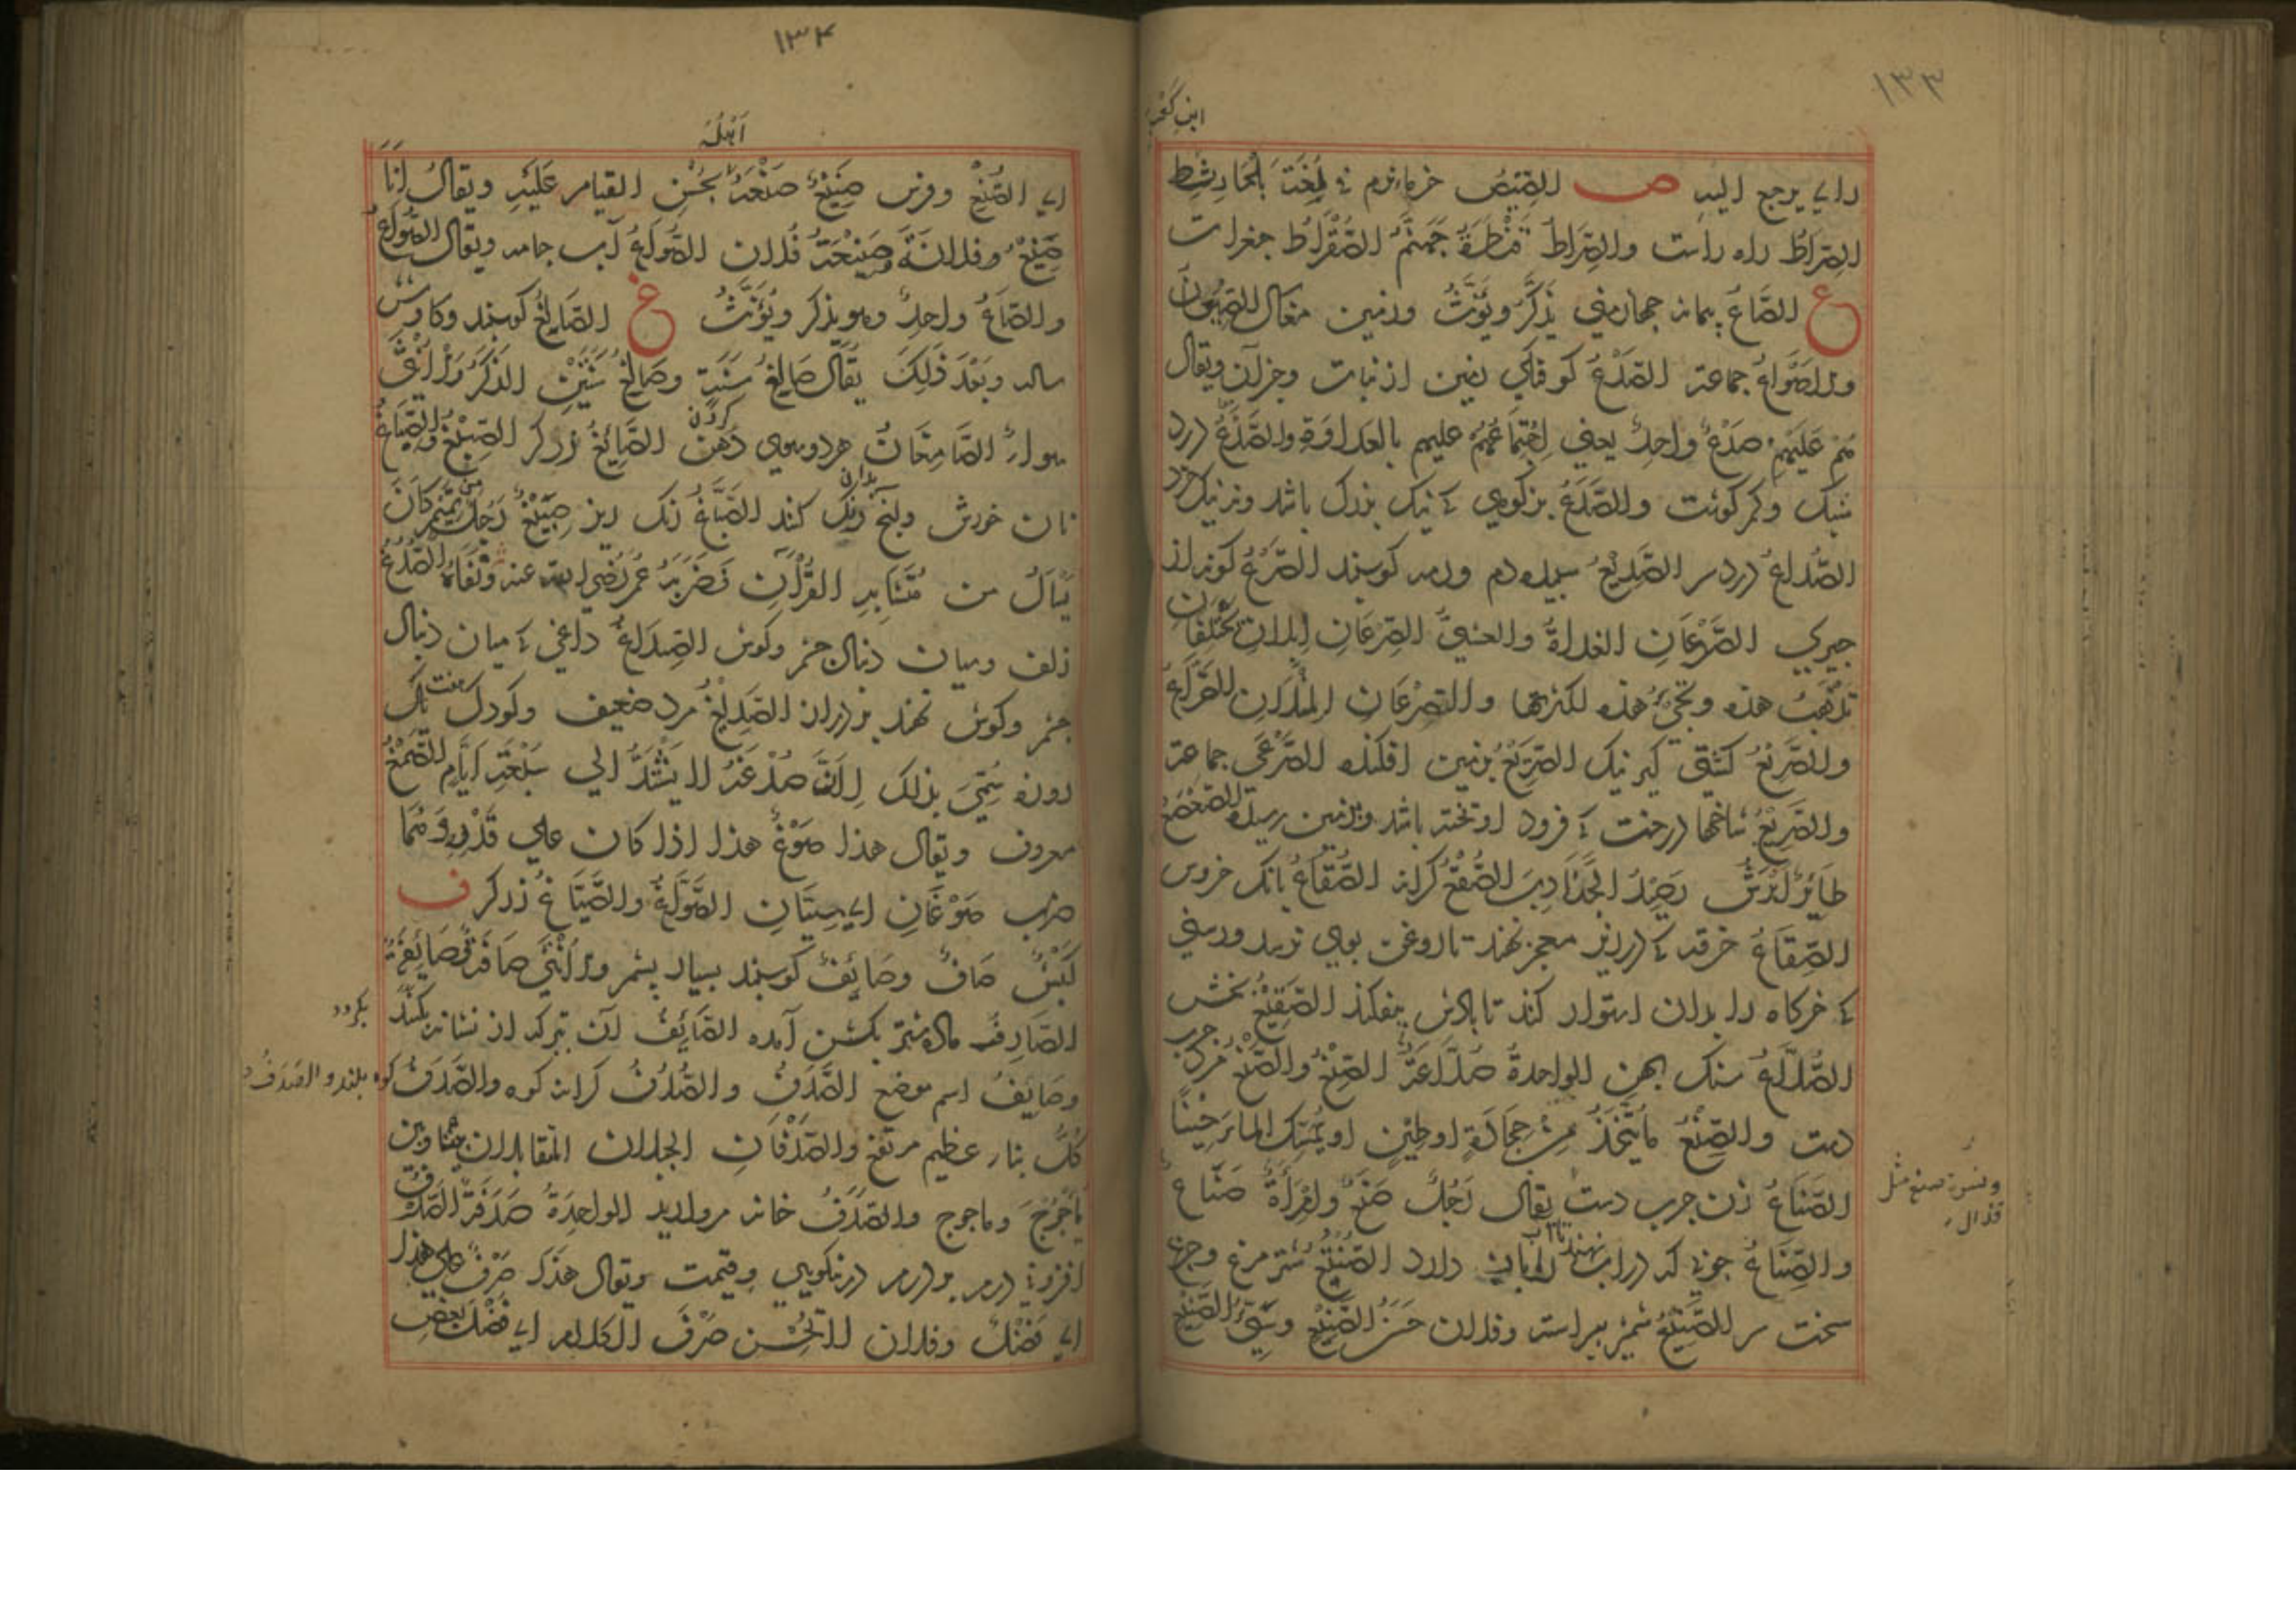 ۱۳۳
ابن كعب
راي يرجع اليه ص الصيص خرماي نرم في لغة بلحارث ط
الصراط راه راست والصراط قنطرة جهنم الصقراط جغرات
ع الصاع پيمانه چهارمني يذكر ويؤنث وزمين مغاك الصيعون
والصواع جماعة الصدع كوفتكي زمين از نبات وجز آن ويقال
هم عليهم صدع واحد يعني اجتماعهم عليهم بالعداوة والصدع مرد
سبك وكم كوشت والصدع بزكوهي كه نيك بزرك باشد ونه نيك خرد
الصداع درد سر الصديع سپيده دم ورمه كوسپند الصرع كونه از
چيزي الصرعان الغداة والعشي الصرعان ابلان تختلفان
تذهب هذه وتجيء هذه لكثرتها والصرعان المثلان الصراع
والصرع كشتي كير نيك الصريع بزمين افكنده الصرعى جماعة
والصريع شاخها درخت كه فرود اويخته باشد وبزمين رسيده الصعصع
طاير ابرش يصيد الجنادب الصقع كرانه الصقاع بانك خروس
الصقاع خرقه كه در زير معجر نهند تا روغن بوي نرسد ورسني
كه خركاه را بدان استوار كنند تا بادش نيفكند الصقيع بخش
الصلاع سنك پهن الواحدة صلاعة الصنع والصنع مرد چرب
دست والصنع ما يتخذ من حجارة او طين او يمسك الماء حينا
الصناع زن چرب دست يقال رجل صنع وامراة صناع
ونسوة صنع مثل
قذال
والصناع چوبي كه در اب نهند تا آب را بازن دارد الصنتع شتر مرغ وخر
سخت سر الصنيع شمشير پيراسته وفلان حسن الصنيع وسيئ الصنيع
۱۳۴
اهله
اي الصنع وفرس صنيع صنعه بحسن القيام عليه ويقال انا
صنيع وفلانة صنيعة فلان الصولع آب جامه ويقال الصواع
والصاع واحد وهو يذكر ويؤنث غ الصالغ كوسپند وكاو شش
ساله وبعد ذلك يقال صالغ سنة وصالغ سنتين الذكر والانثى
سواء الصامغان هر دو سوي دهن الصايغ زركر الصبغ والصباغ
نان خورش وانچ بدان رنك كنند الصباغ رنك ريز صبيغ رجل من تميم كان
يسأل من متشابه القرآن فضربه عمر رضي الله عنه ونفاه الصدغ
زلف وميان دنبال چشم وكوش الصداغ داغي كه ميان دنبال
چشم وكوش نهند بر دران الصديغ مرد ضعيف وكودك هفت يك
روزه سمي بذلك لان صدغه لا يشتد الي سبعة ايام الصمغ
معروف ويقال هذا صوغ هذا اذا كان علي قدره وهما
صوغان اي سيان الصواغ والصياغ زركر ف
كبش صاف وصايف كوسپند بسيار پشم والانثى صافة وصايفة
الصارف ماده شتر بكشن آمده الصايف آن تير كه از نشانه بكذرد
وصايف اسم موضع الصدف والصدف كرانه كوه والصدف كوه بلند والصدف
كل بناء عظيم مرتفع والصدفان الجبلان المتقابلان بيننا وبين
يأجوج وماجوج والصدف خانه مرواريد الواحدة صدفة الصرف
افزوني درم بر درم در نكويي وقيمت ويقال هذا صرف علي هذا
اي فضل وفلان لا يحسن صرف الكلام اي فضل بعض